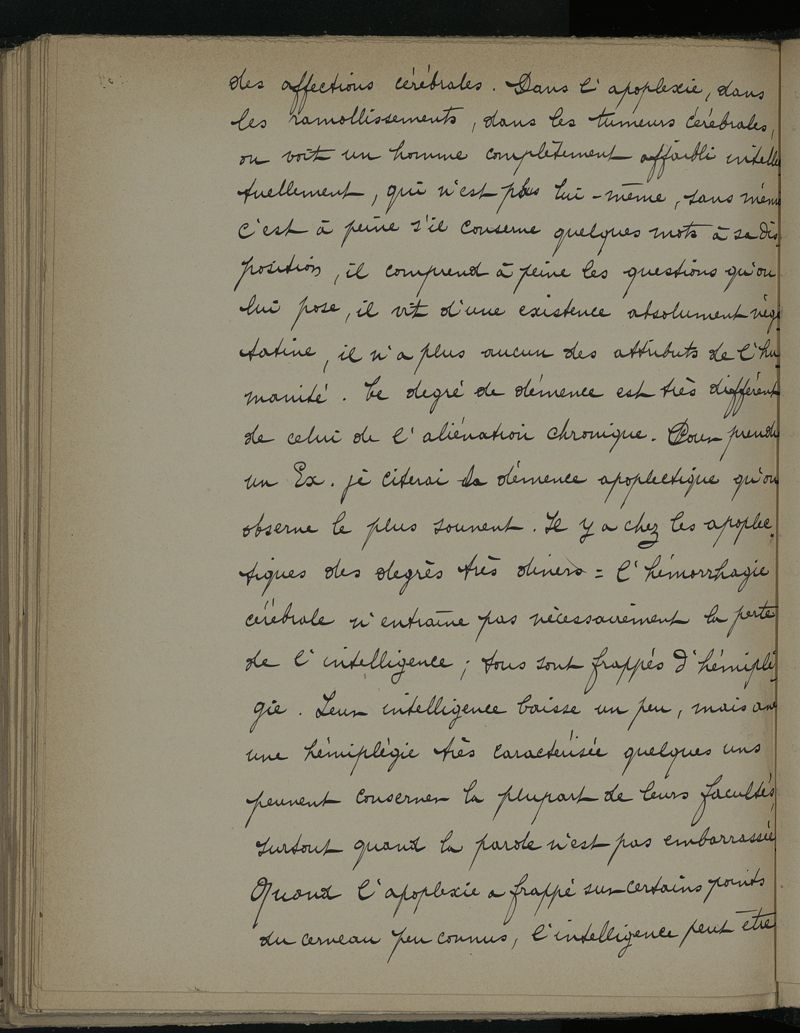 des affections cérébrales. Dans l'apoplexie, dans
les ramollissements, dans les tumeurs cérébrales,
on voit un homme complètement affaibli intelle
tuellement, qui n'est plus lui-même, sans même
C'est à peine s'il conserve quelques mots à sa dis
position, il comprend à peine les questions qu'on
lui pose, il vit d'une existence absolument végé
tative, il n'a plus aucun des attributs de l'hu
manité. Ce degré de démence est très différent
de celui de l'aliénation chronique. Pour prendre
un Ex. je citerai la démence apoplectique qu'on
observe le plus souvent. Il y a chez les apoplec
tiques des degrès très divers = l'hémorrhagie
cérébrale n'entraîne pas nécessairement la perte
de l'intelligence ; tous sont frappés d'hémiplé
gie. Leur intelligence baisse un peu, mais avec
une hémiplégie très caractérisée quelques uns
peuvent conserver la plupart de leurs facultés,
surtout quand la parole n'est pas embarrassée
Quand l'apoplexie a frappé sur certains points
du cerveau peu connus, l'intelligence peut être